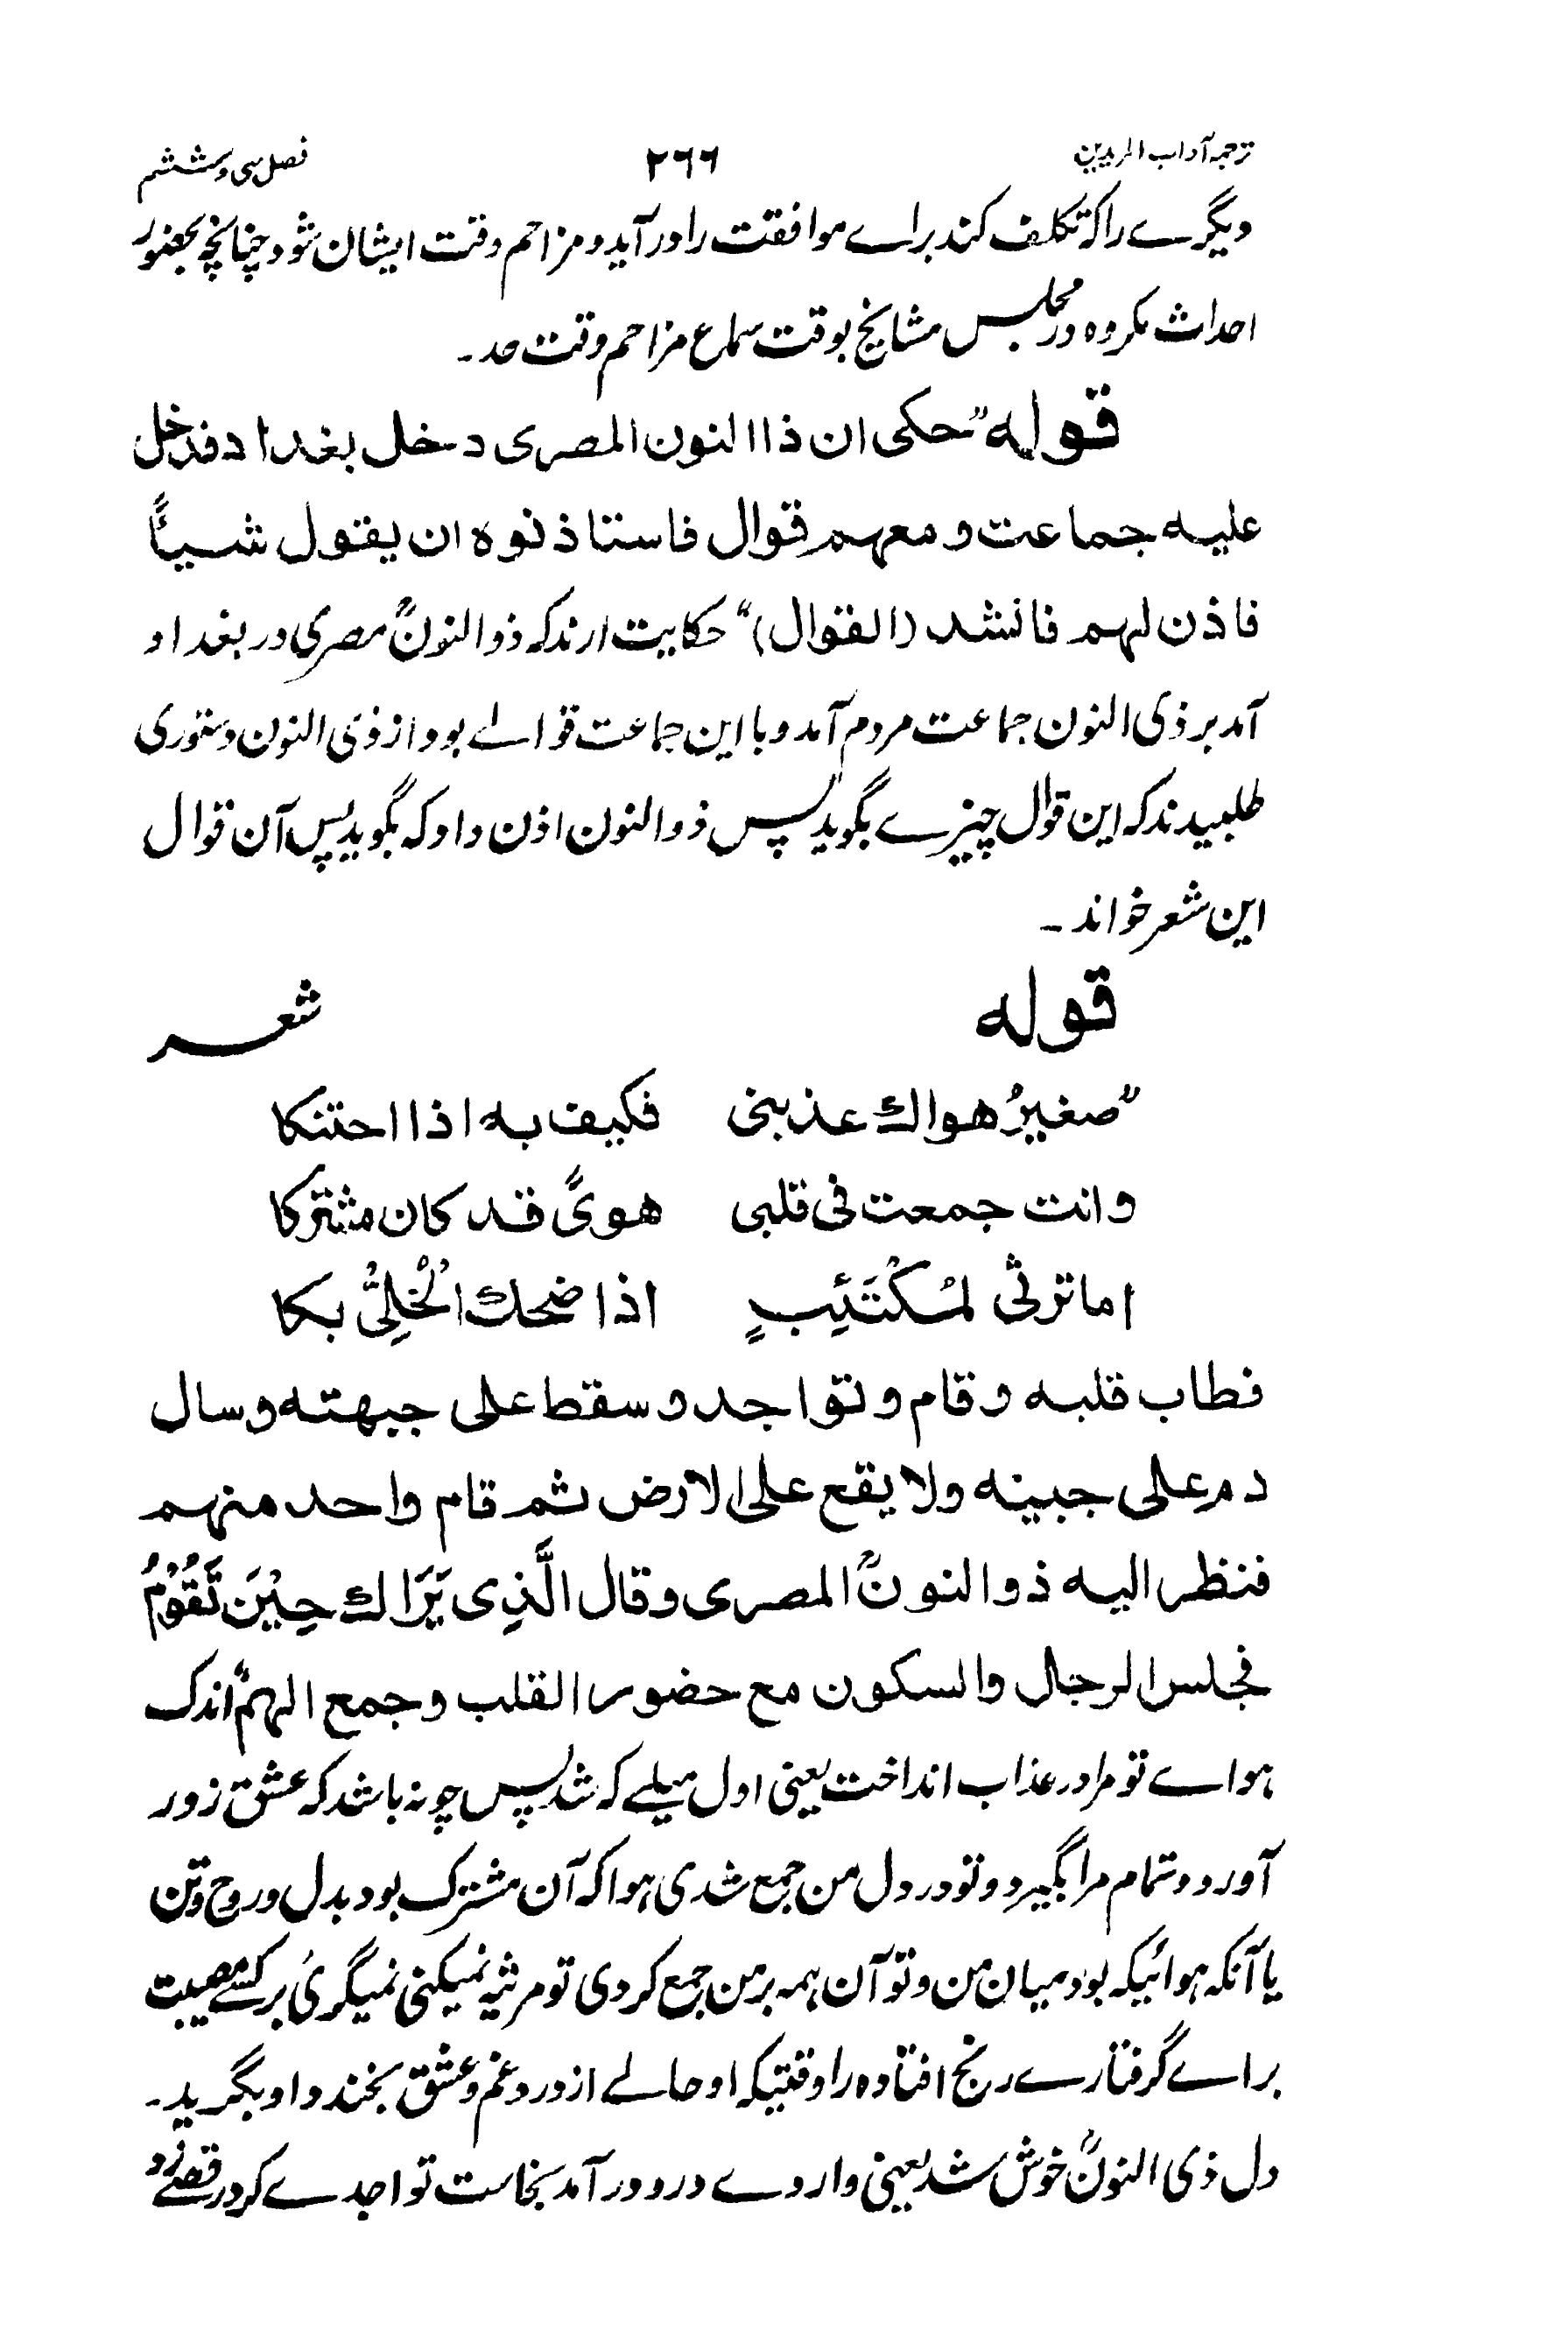 ترجمہ آداب المریدین ۲۶۶ فصل سی و ششم
دیگرے را کہ تکلف کند براے موافقت را در آید و مزاحم وقت ایشان شود چنانچہ بحضور
احداث مکروہ در مجلس مشایخ بوقت سماع مزاحم وقت حد۔
قوله "حکی ان ذا النون المصری دخل بغداد فدخل
علیه جماعت و معهم قوال فاستاذنوه ان یقول شیئاً
فاذن لهم فانشد (القوال)" حکایت ارند کہ ذوالنونؒ مصری در بغداد
آمد بر ذی النون جماعت مردم آمد و با این جماعت قوالے بود از ذی النون دستوری
طلبیدند کہ این قوال چیزے بگوید پس ذوالنون اذن داد کہ بگوید پس آن قوال
این شعر خواند۔
قوله شعر
"صغیرُ هواك عذبنی فکیف به اذا احتنکا
وانت جمعت فی قلبی هویً قد کان مشترکا
اما ترثی لمُکْتَئِبٍ اذا ضحك الْخَلِیُّ بکا
فطاب قلبه وقام وتواجد وسقط علی جبهته وسال
دم علی جبینه ولا یقع علی الارض ثم قام واحد منهم
فنظر الیه ذوالنونؒ المصری وقال الَّذِی یَرَاكَ حِیْنَ تَقُوْمُ
فجلس الرجال والسکون مع حضور القلب وجمع الهم" اندک
ہواے تو مرا در عذاب انداخت یعنی اول میلے کہ شد پس چونہ باشد کہ عشق زور
آورد و تمام مرا بگیرد و تو در دل من جمع شدی ہوا کہ آن مشترک بود بدل و روح و تن
یا آنکہ ہوائیکہ بود میان من و تو آن ہمہ بر من جمع کردی تو مرثیہ نمیکنی نمیگریٔ بر کسے مصیبت
براے گرفتارے رنج افتادہ را وقتیکہ او حالے از درد و غم و عشق بخندد او بگرید۔
دل ذی النونؒ خوش شد یعنی واردے درو در آمد بخاست تواجدے کرد رقصے زد